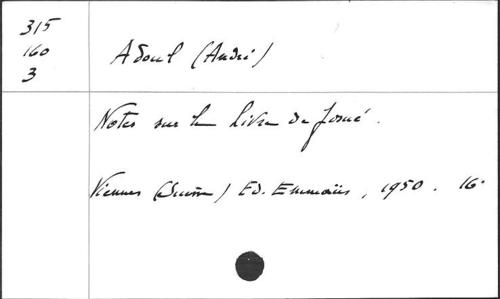 315
160
3
Adoul (André)
Notes sur le Livre de Josué.
Vennes (Suisse) Ed. Emmaüs, 1950. 16°